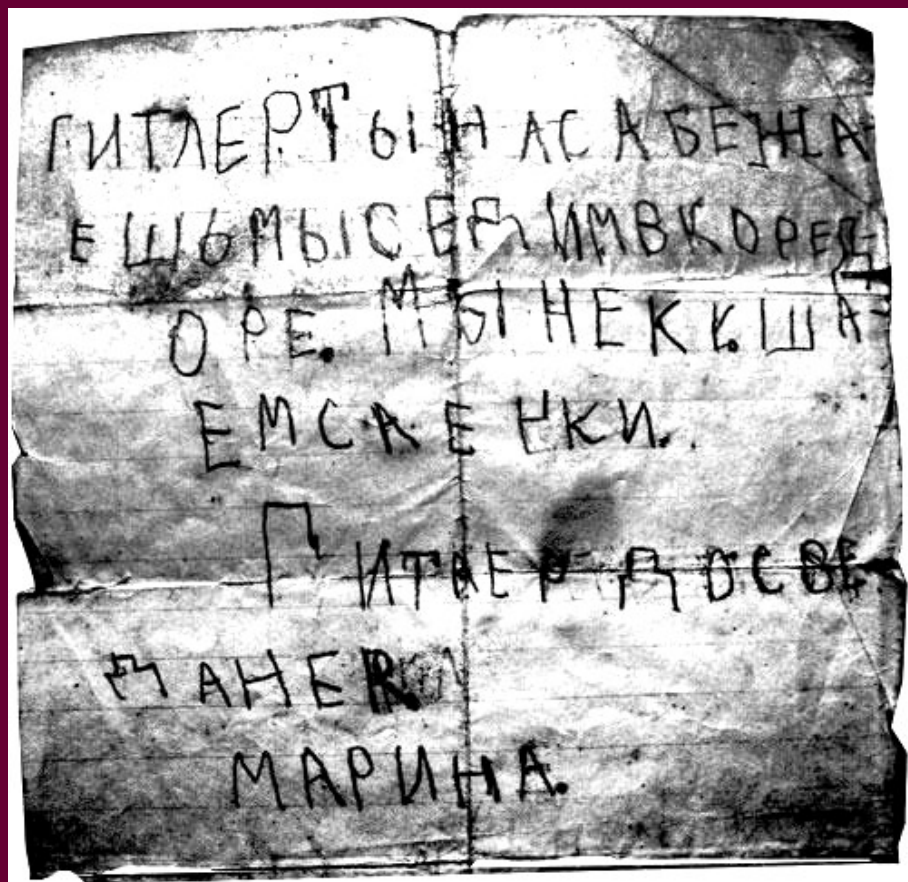 ГИТЛЕРТЫНАСАБЕЖА-
ЕШЬМЫСЕДИМВКОРЕД-
ОРЕ. МЫНЕКК.ША-
ЕМСАЕНКИ.
ГИТЛЕР ДОСВЕ-
ДАНЕЯ.
МАРИНА.